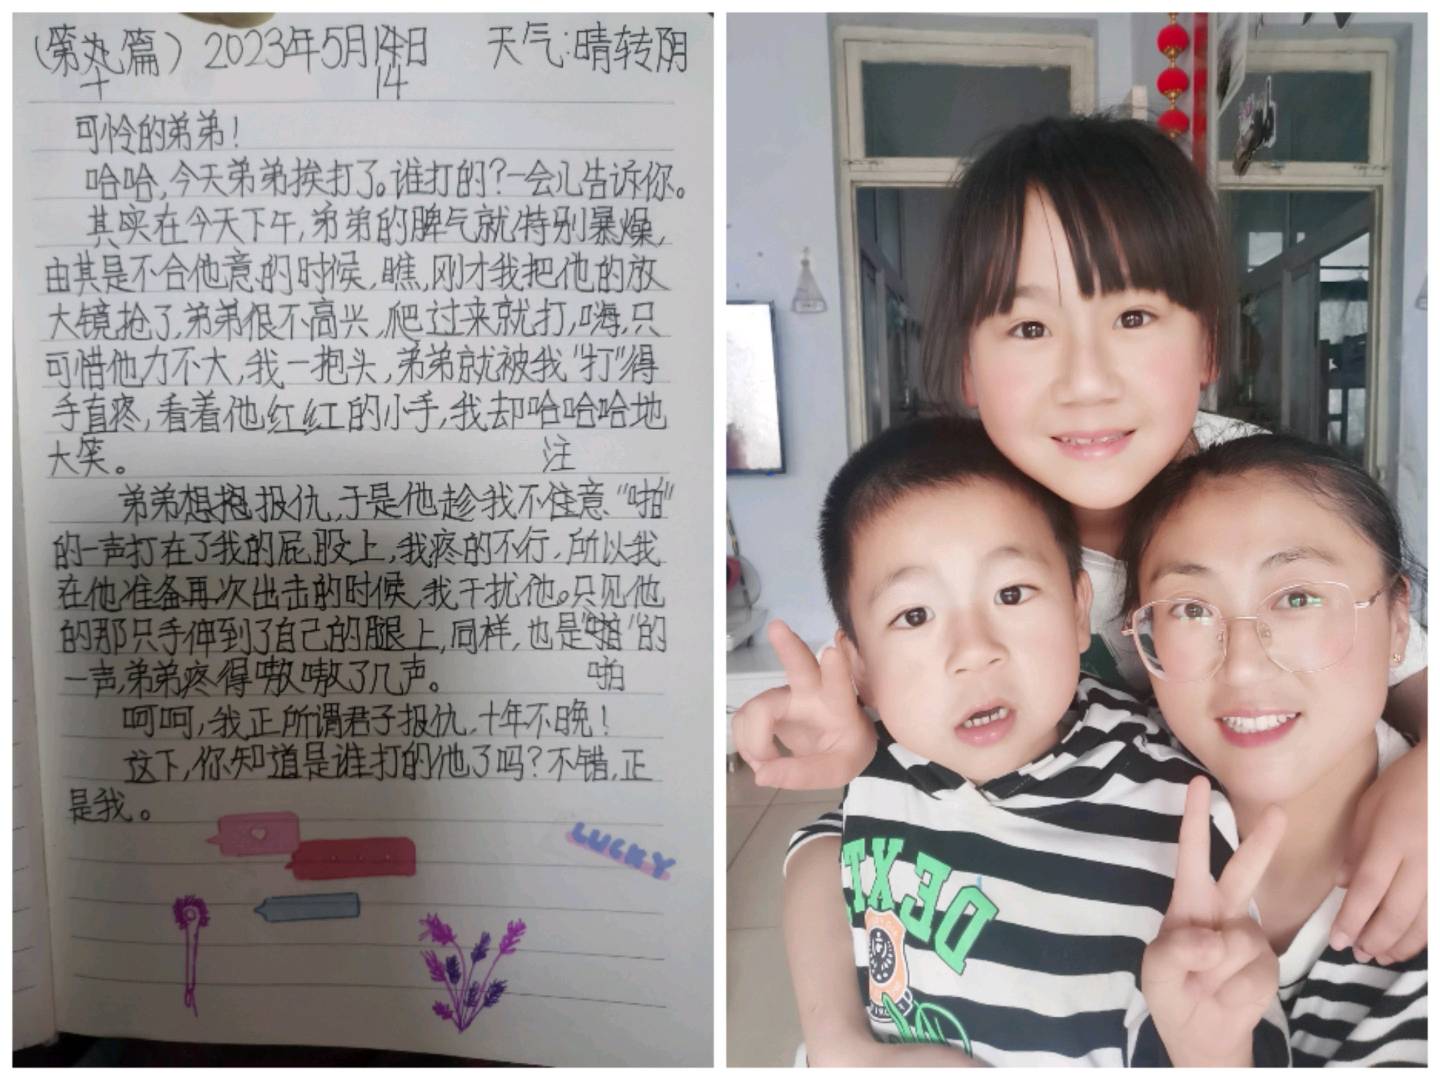 （第九篇）2023年5月14日 天气：晴转阴
十 14
可怜的弟弟！
哈哈，今天弟弟挨打了。谁打的？一会儿告诉你。
其实在今天下午，弟弟的脾气就特别暴燥，
由其是不合他意的时候，瞧，刚才我把他的放
大镜抢了，弟弟很不高兴，爬过来就打，嗨，只
可惜他力不大，我一抱头，弟弟就被我“打”得
手直疼，看着他红红的小手，我却哈哈哈地
大笑。
注
弟弟想报仇，于是他趁我不住意“啪”
的一声打在了我的屁股上，我疼的不行，所以我
在他准备再次出击的时候，我干扰他。只见他
的那只手伸到了自己的腿上，同样，也是“啪”的
一声，弟弟疼得嗷嗷了几声。
啪
呵呵，我正所谓君子报仇，十年不晚！
这下，你知道是谁打的他了吗？不错，正
是我。
LUCKY
DEXT